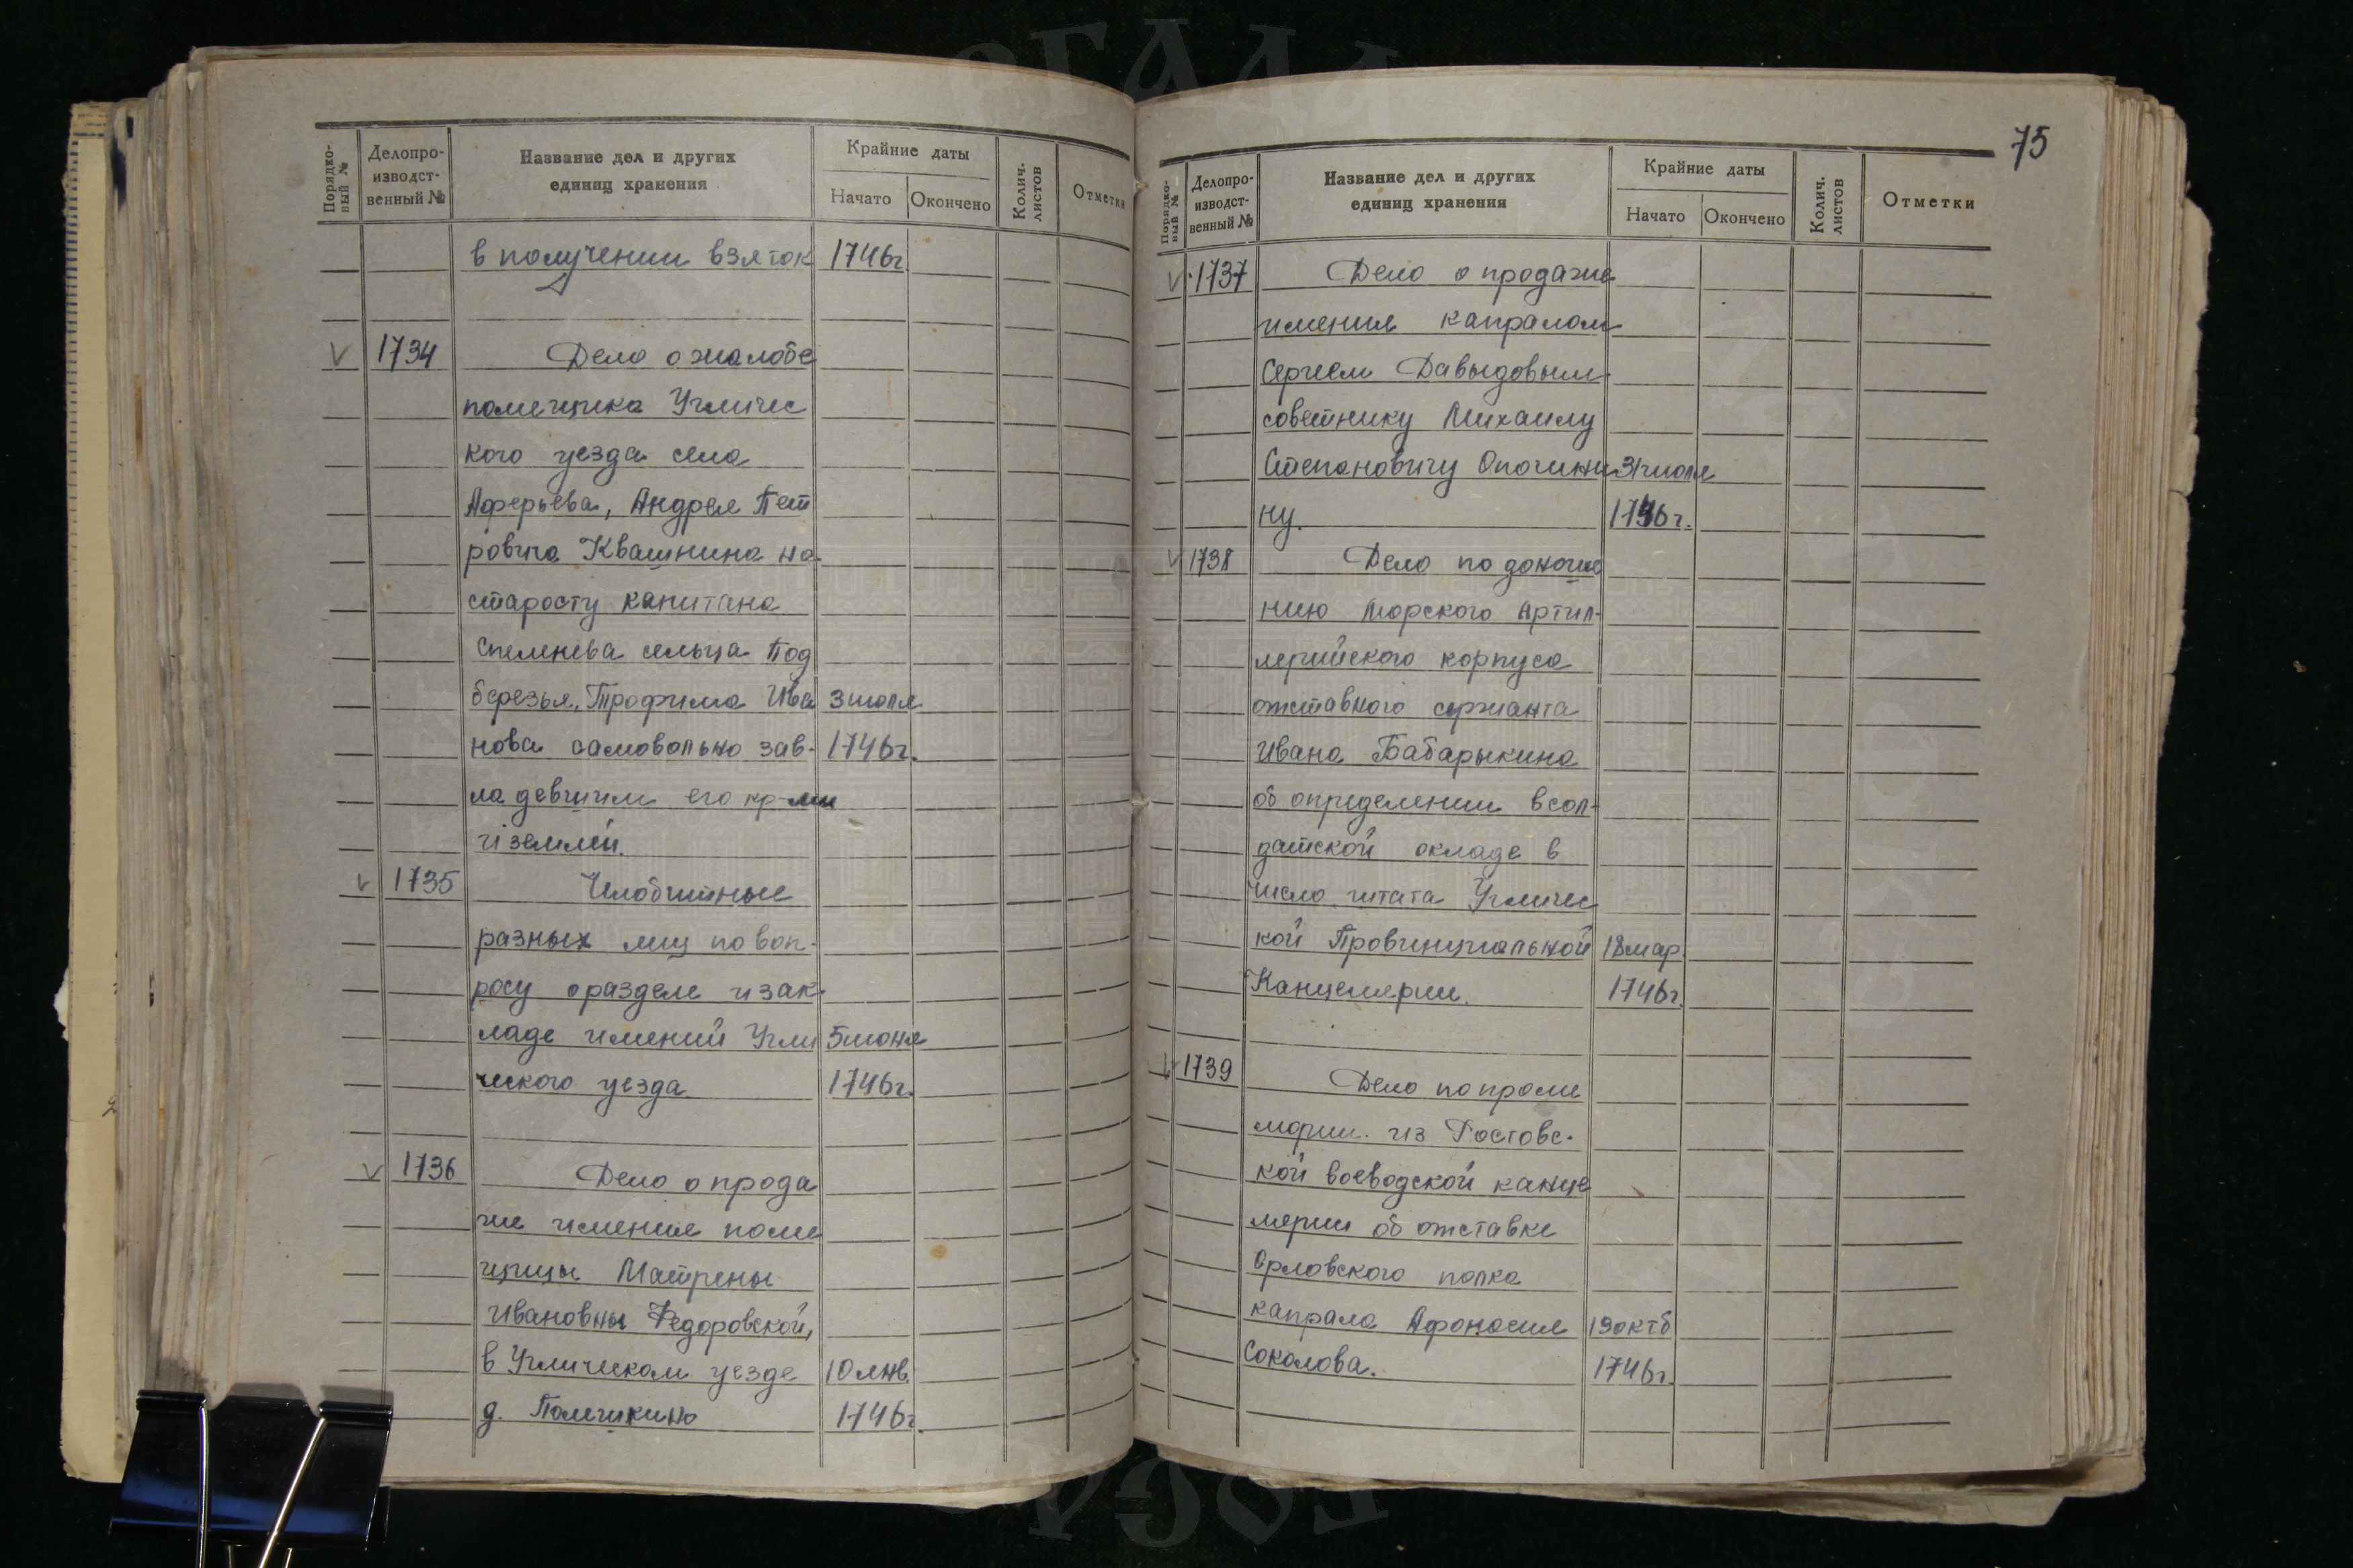 Порядко-
вый №
Делопро-
изводст-
венный №
Название дел и других
единиц хранения
Крайние даты
Начато Окончено
Колич.
листов
Отметки
в получении взяток 1746г.
V 1734 Дело о жалобе
помещика Угличес
кого уезда села
Аферьева, Андрея Пет
ровича Квашнина на
старосту капитана
сельца Под
березья, Трофима Ива 3 июля
нова самовольно зав- 1746г.
ладевшим его кр-ми
и землей.
V 1735 Челобитные
разных лиц по воп-
росу о разделе и зак-
ладе имений Угли 5 июня
ческого уезда 1746г.
V 1736 Дело о прода
же имения поме
щицы Матрены
Ивановны Федоровской,
в Угличском уезде 10 янв.
д. 1746г.
75
Порядко-
вый №
Делопро-
изводст-
венный №
Название дел и других
единиц хранения
Крайние даты
Начато Окончено
Колич.
листов
Отметки
V 1737 Дело о продаже
имения капралом
Сергеем Давыдовым
советнику Михаилу
Степановичу Опочини 31 июля
ну. 1746г.
V 1738 Дело по доноше
нию Морского Артил-
лерийского корпуса
отставного сержанта
Ивана Бабарыкина
об определении в сол-
датской окладе в
число штата Угличес
кой Провинциальной 18 мар.
Канцелярии. 1746г.
V 1739 Дело по проме
мории из Ростовс-
кой воеводской канце
лярии об отставке
Орловского полка
капрала Афонасия 19 октб
Соколова. 1746г.